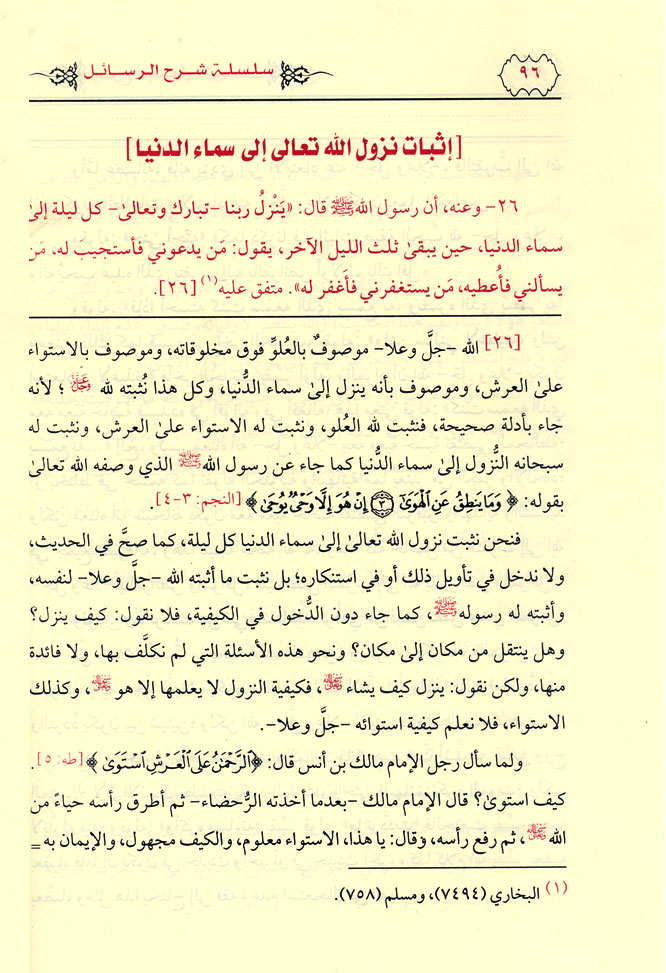 ٩٦
سلسلة شرح الرسائل
[إثبات نزول الله تعالى إلى سماء الدنيا]
٢٦- وعنه، أن رسول الله ﷺ قال: «يَنْزلُ ربنا -تبارك وتعالىٰ- كل ليلة إلىٰ
سماء الدنيا، حين يبقىٰ ثلث الليل الآخر، يقول: مَن يدعوني فأستجيبَ له، مَن
يسألني فأُعطيه، مَن يستغفرني فأَغفر له». متفق عليه(١) [٢٦].
[٢٦] الله -جلَّ وعلا- موصوفٌ بالعُلوِّ فوق مخلوقاته، وموصوف بالاستواء
علىٰ العرش، وموصوف بأنه ينزل إلىٰ سماء الدُّنيا، وكل هذا نُثبته لله ﷻ؛ لأنه
جاء بأدلة صحيحة، فنثبت لله العُلو، ونثبت له الاستواء علىٰ العرش، ونثبت له
سبحانه النُّزول إلىٰ سماء الدُّنيا كما جاء عن رسول الله ﷺ الذي وصفه الله تعالىٰ
بقوله: ﴿وَمَا يَنطِقُ عَنِ الْهَوَىٰ ۝٣ إِنْ هُوَ إِلَّا وَحْيٌ يُوحَىٰ﴾ [النجم: ٣-٤].
فنحن نثبت نزول الله تعالىٰ إلىٰ سماء الدنيا كل ليلة، كما صحَّ في الحديث،
ولا ندخل في تأويل ذلك أو في استنكاره؛ بل نثبت ما أثبته الله -جلَّ وعلا- لنفسه،
وأثبته له رسوله ﷺ، كما جاء دون الدُّخول في الكيفية، فلا نقول: كيف ينزل؟
وهل ينتقل من مكان إلىٰ مكان؟ ونحو هذه الأسئلة التي لم نكلَّف بها، ولا فائدة
منها، ولكن نقول: ينزل كيف يشاء ﷻ، فكيفية النزول لا يعلمها إلا هو ﷻ، وكذلك
الاستواء، فلا نعلم كيفية استوائه -جلَّ وعلا-.
ولما سأل رجل الإمام مالك بن أنس قال: ﴿الرَّحْمَٰنُ عَلَى الْعَرْشِ اسْتَوَىٰ﴾ [طه: ٥].
كيف استوىٰ؟ قال الإمام مالك -بعدما أخذته الرُّحضاء- ثم أطرق رأسه حياءً من
الله ﷻ، ثم رفع رأسه، وقال: يا هذا، الاستواء معلوم، والكيف مجهول، والإيمان به =
(١) البخاري (٧٤٩٤)، ومسلم (٧٥٨).